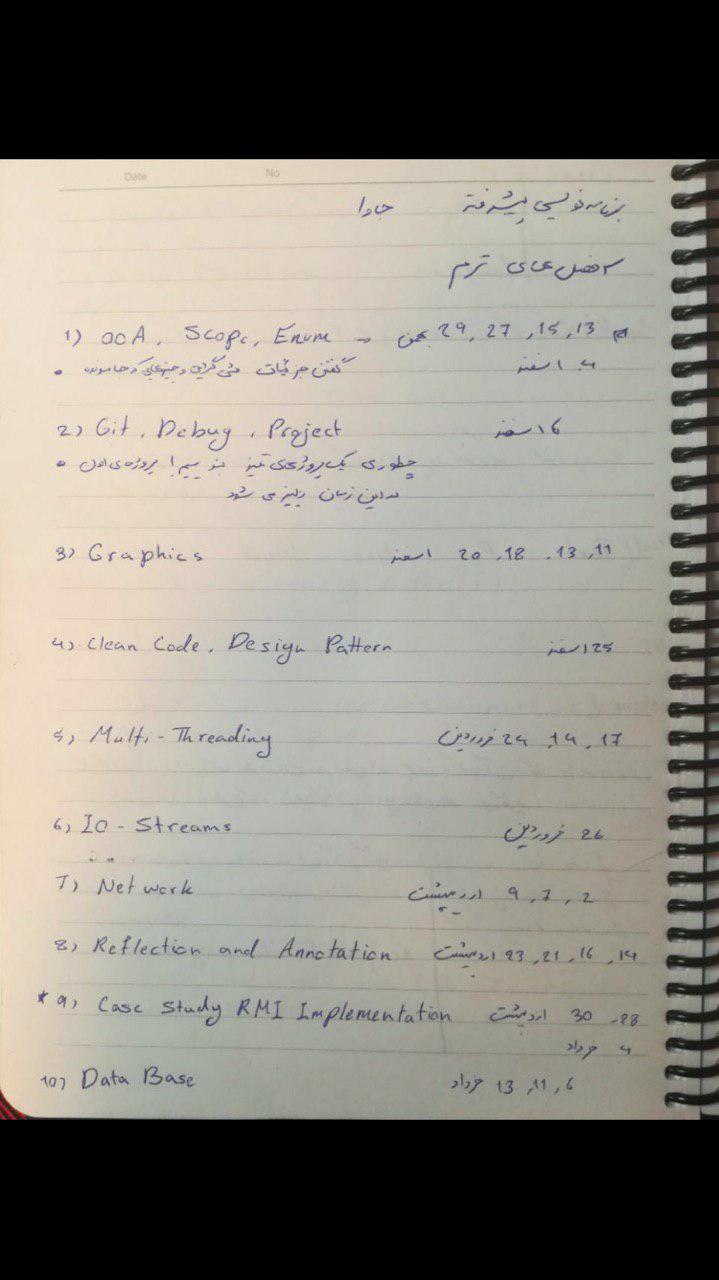 Date No
برنامه نویسی پیشرفته جاوا
سرفصل های ترم
1) OCA, Scope, Enum → 13, 15, 27, 29 بهمن
4 اسفند
• گفتن جزئیات شی گرایی و چیزهایی که جا مونده
2) Git, Debug, Project 6 اسفند
• چطوری یک پروژه‌ی تمیز بنویسیم! پروژه‌ی اول
در این زمان ریلیز می شود
3) Graphics 11, 13, 18, 20 اسفند
4) Clean Code, Design Pattern 25 اسفند
5) Multi-Threading 17, 19, 24 فروردین
6) IO - Streams 26 فروردین
7) Network 2, 7, 9 اردیبهشت
8) Reflection and Annotation 14, 16, 21, 23 اردیبهشت
* 9) Case Study RMI Implementation 28, 30 اردیبهشت
4 خرداد
10) Data Base 6, 11, 13 خرداد